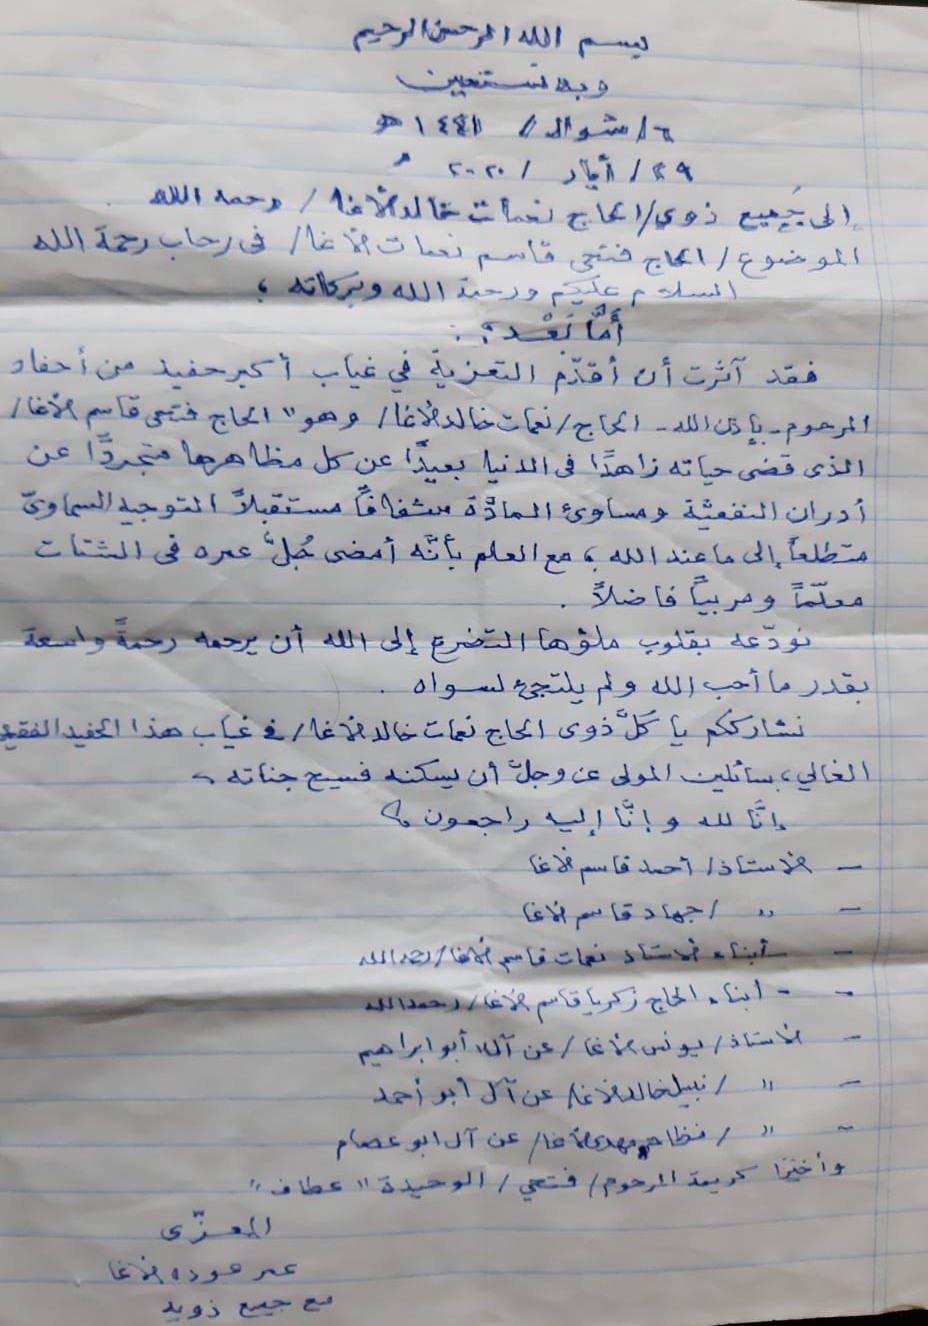 بسم الله الرحمن الرحيم
وبه نستعين
٦/ شوال / ١٤٤١ هـ
٢٩ / أيار / ٢٠٢٠ م
إلى جميع ذوي/ الحاج نعمات خالد الأغا / رحمه الله .
الموضوع / الحاج فتحي قاسم نعمات الأغا / في رحاب رحمة الله
السلام عليكم ورحمة الله وبركاته ،
أمَّا بَعْد ؛ :
فقد آثرت أن أقدّم التعزية في غياب أكبر حفيد من أحفاد
المرحوم - بإذن الله - الحاج / نعمات خالد الأغا / وهو " الحاج فتحي قاسم الأغا /
الذي قضى حياته زاهدًا في الدنيا بعيدًا عن كل مظاهرها متجردًا عن
أدران النفعيّة ومساوئ المادَّة شفافًا مستقبلاً التوجيه السماويّ
متطلعاً إلى ما عند الله ، مع العلم بأنَّه أمضى جُلَّ عمره في الشتات
معلّماً ومربياً فاضلاً .
نودّعه بقلوب ملؤها التضرع إلى الله أن يرحمه رحمةً واسعة
بقدر ما أحب الله ولم يلتجئ لسواه .
نشارككم يا كلَّ ذوي الحاج نعمات خالد الأغا / في غياب هذا الحفيد الفقيد
الغالي ، سائلين المولى عز وجلّ أن يسكنه فسيح جناته ،
إنَّا لله وإنَّا إليه راجعون
- الأستاذ / أحمد قاسم الأغا
- " / جهاد قاسم الأغا
- أبناء الأستاذ نعمات قاسم الأغا / رحمه الله
- - أبناء الحاج زكريا قاسم الأغا / رحمه الله
- الأستاذ / يونس الأغا / عن آل أبو ابراهيم
- " / نبيل خالد الأغا / عن آل أبو أحمد
- " / نظام مهدي الأغا / عن آل ابو عصام
وأخيرًا كريمة المرحوم / فتحي / الوحيدة " عطاف "
المعزّى
عمر عوده الأغا
مع جميع ذويه